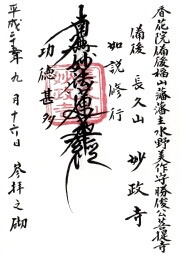 香花院備後福山藩藩主水野美作守勝俊公菩提寺
備後 長久山 妙政寺
如説修行
南無妙法蓮華経
功徳甚多
平成二十年九月十六日 参拝之砌